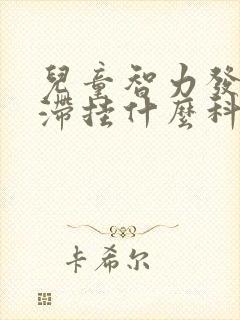 兒童智力發
滯挂什麼科
卡希尔